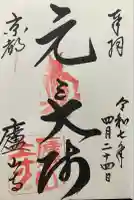 奉拝
令和七年
四月二十四日
元三大師
京都
廬山寺